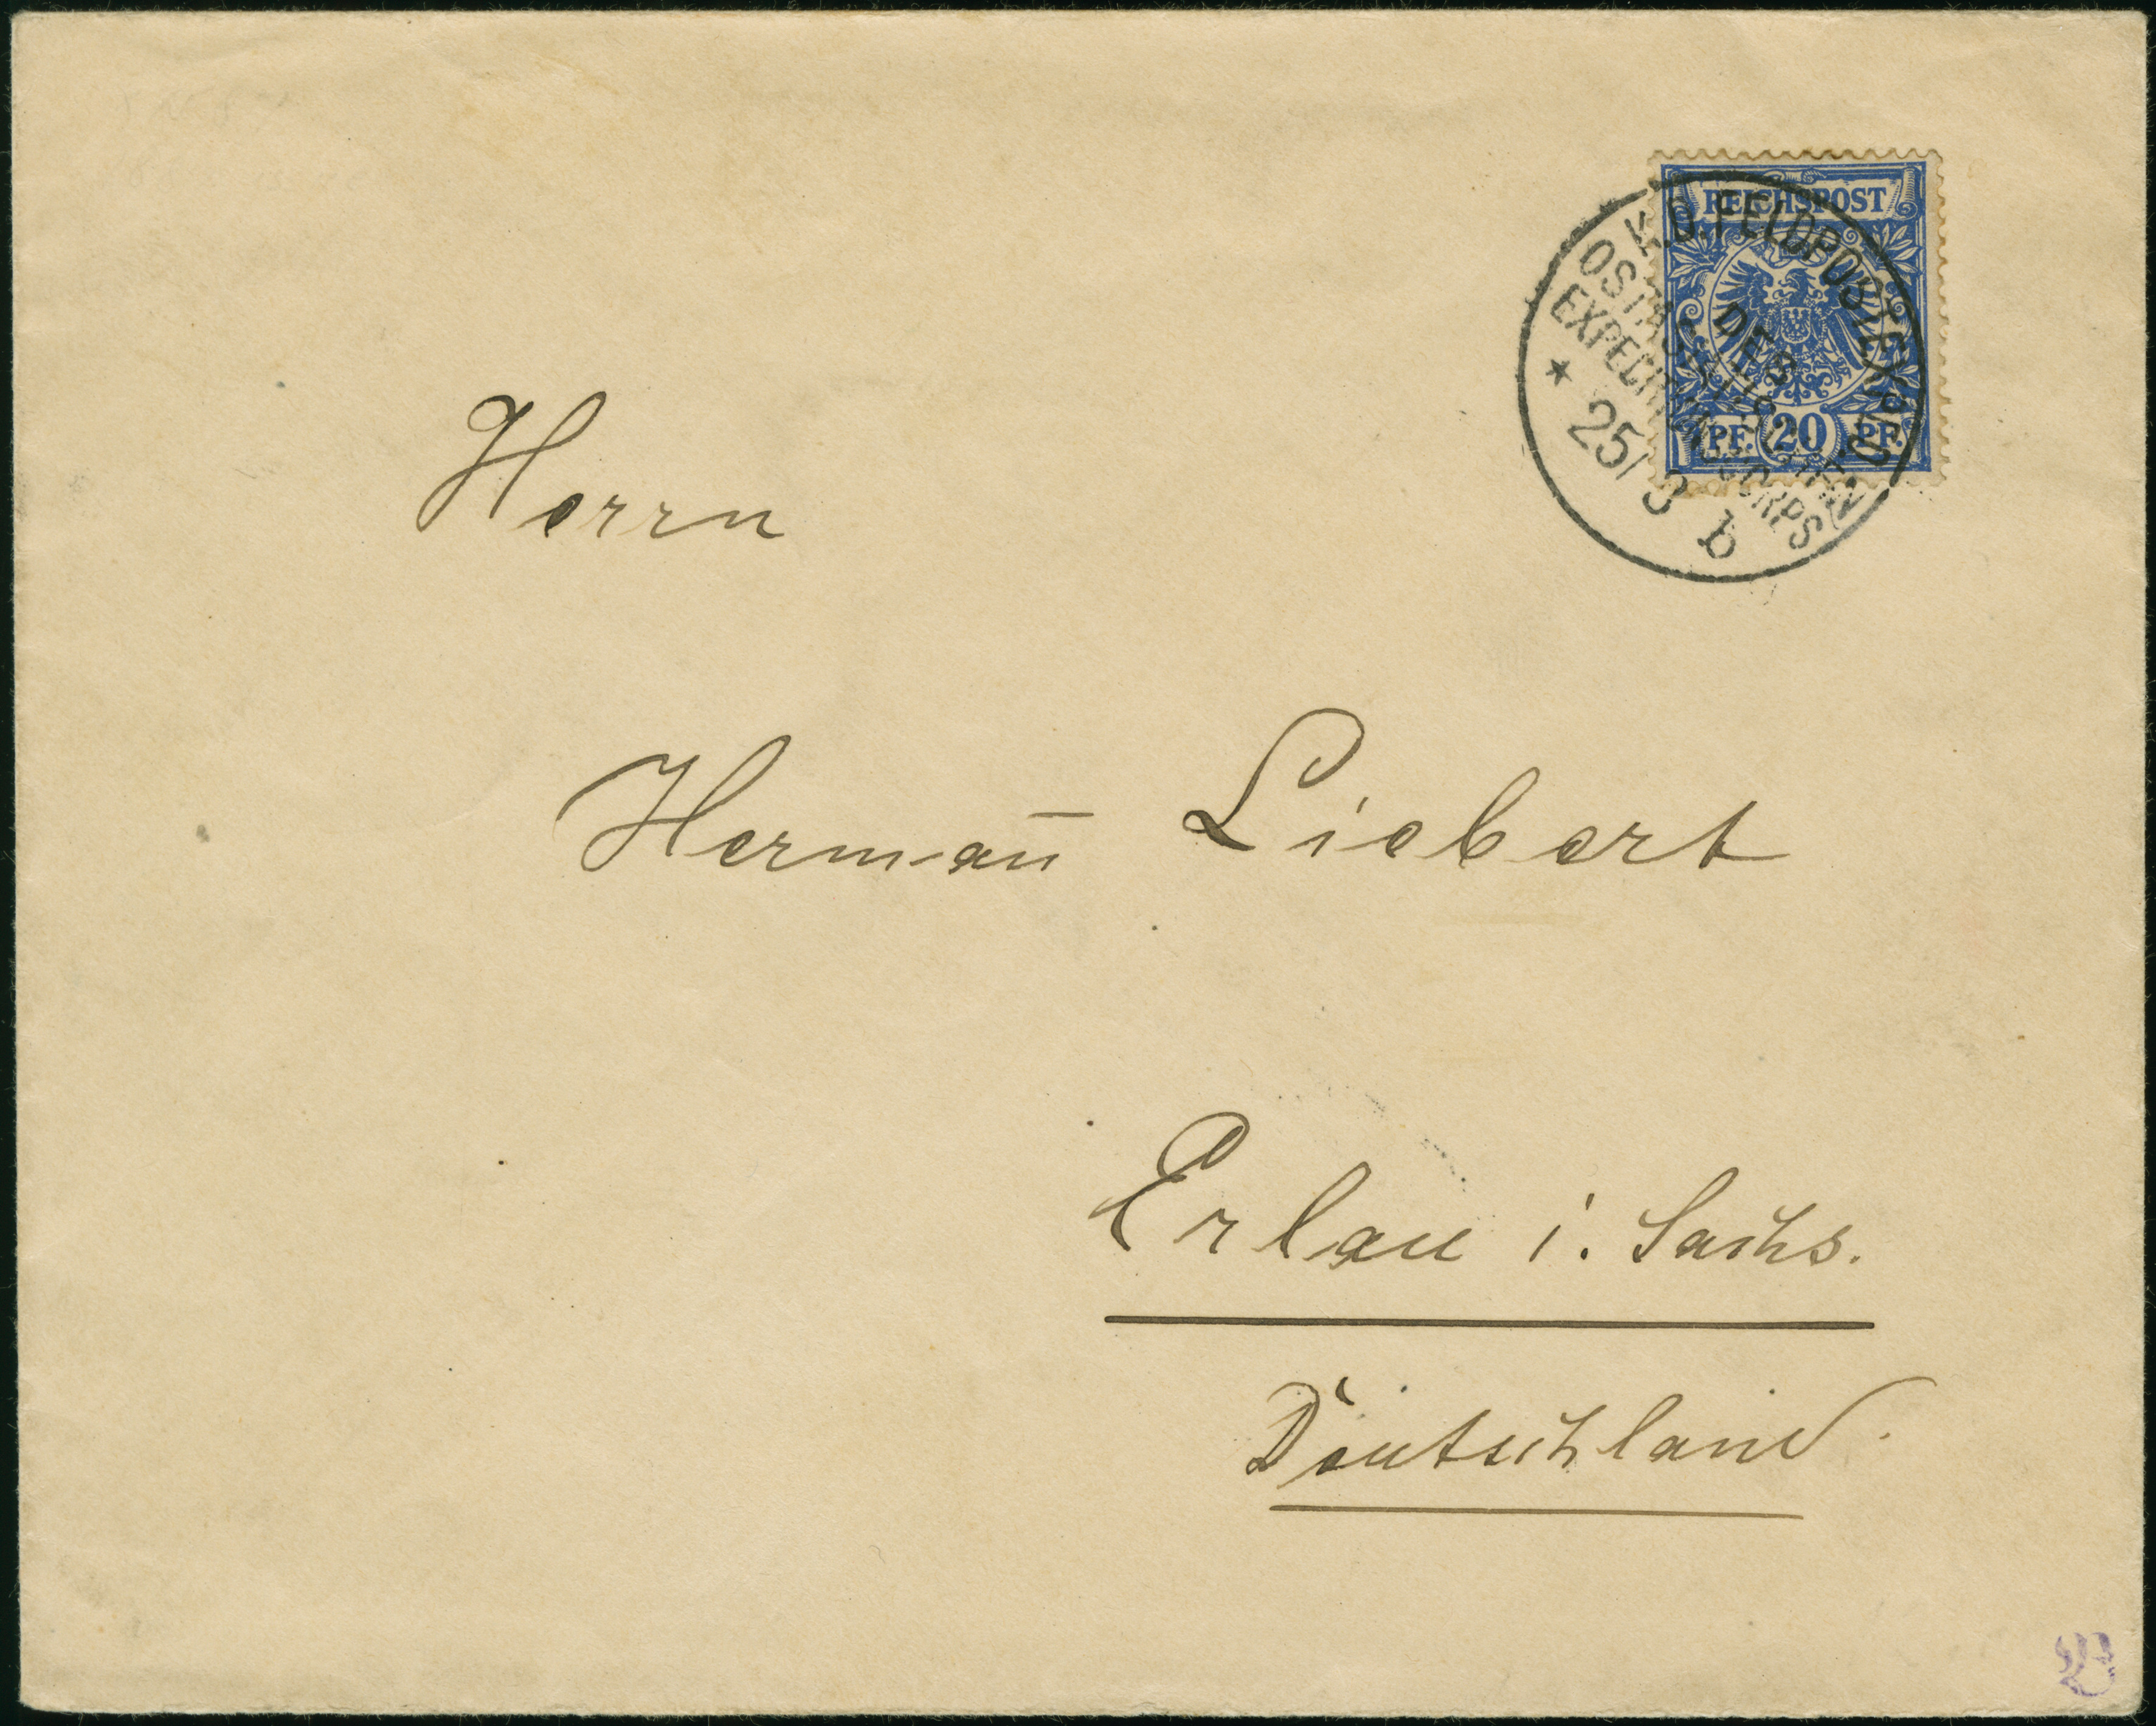 REICHSPOST
PF. 20 PF.
K.D. FELDPOSTEXPED
DES
OSTASIATISCHEN
EXPEDITIONSCORPS
* 25/3 b
Herrn
Herman̄ Liebert
Erlau i. Sachs.
Deutschland.